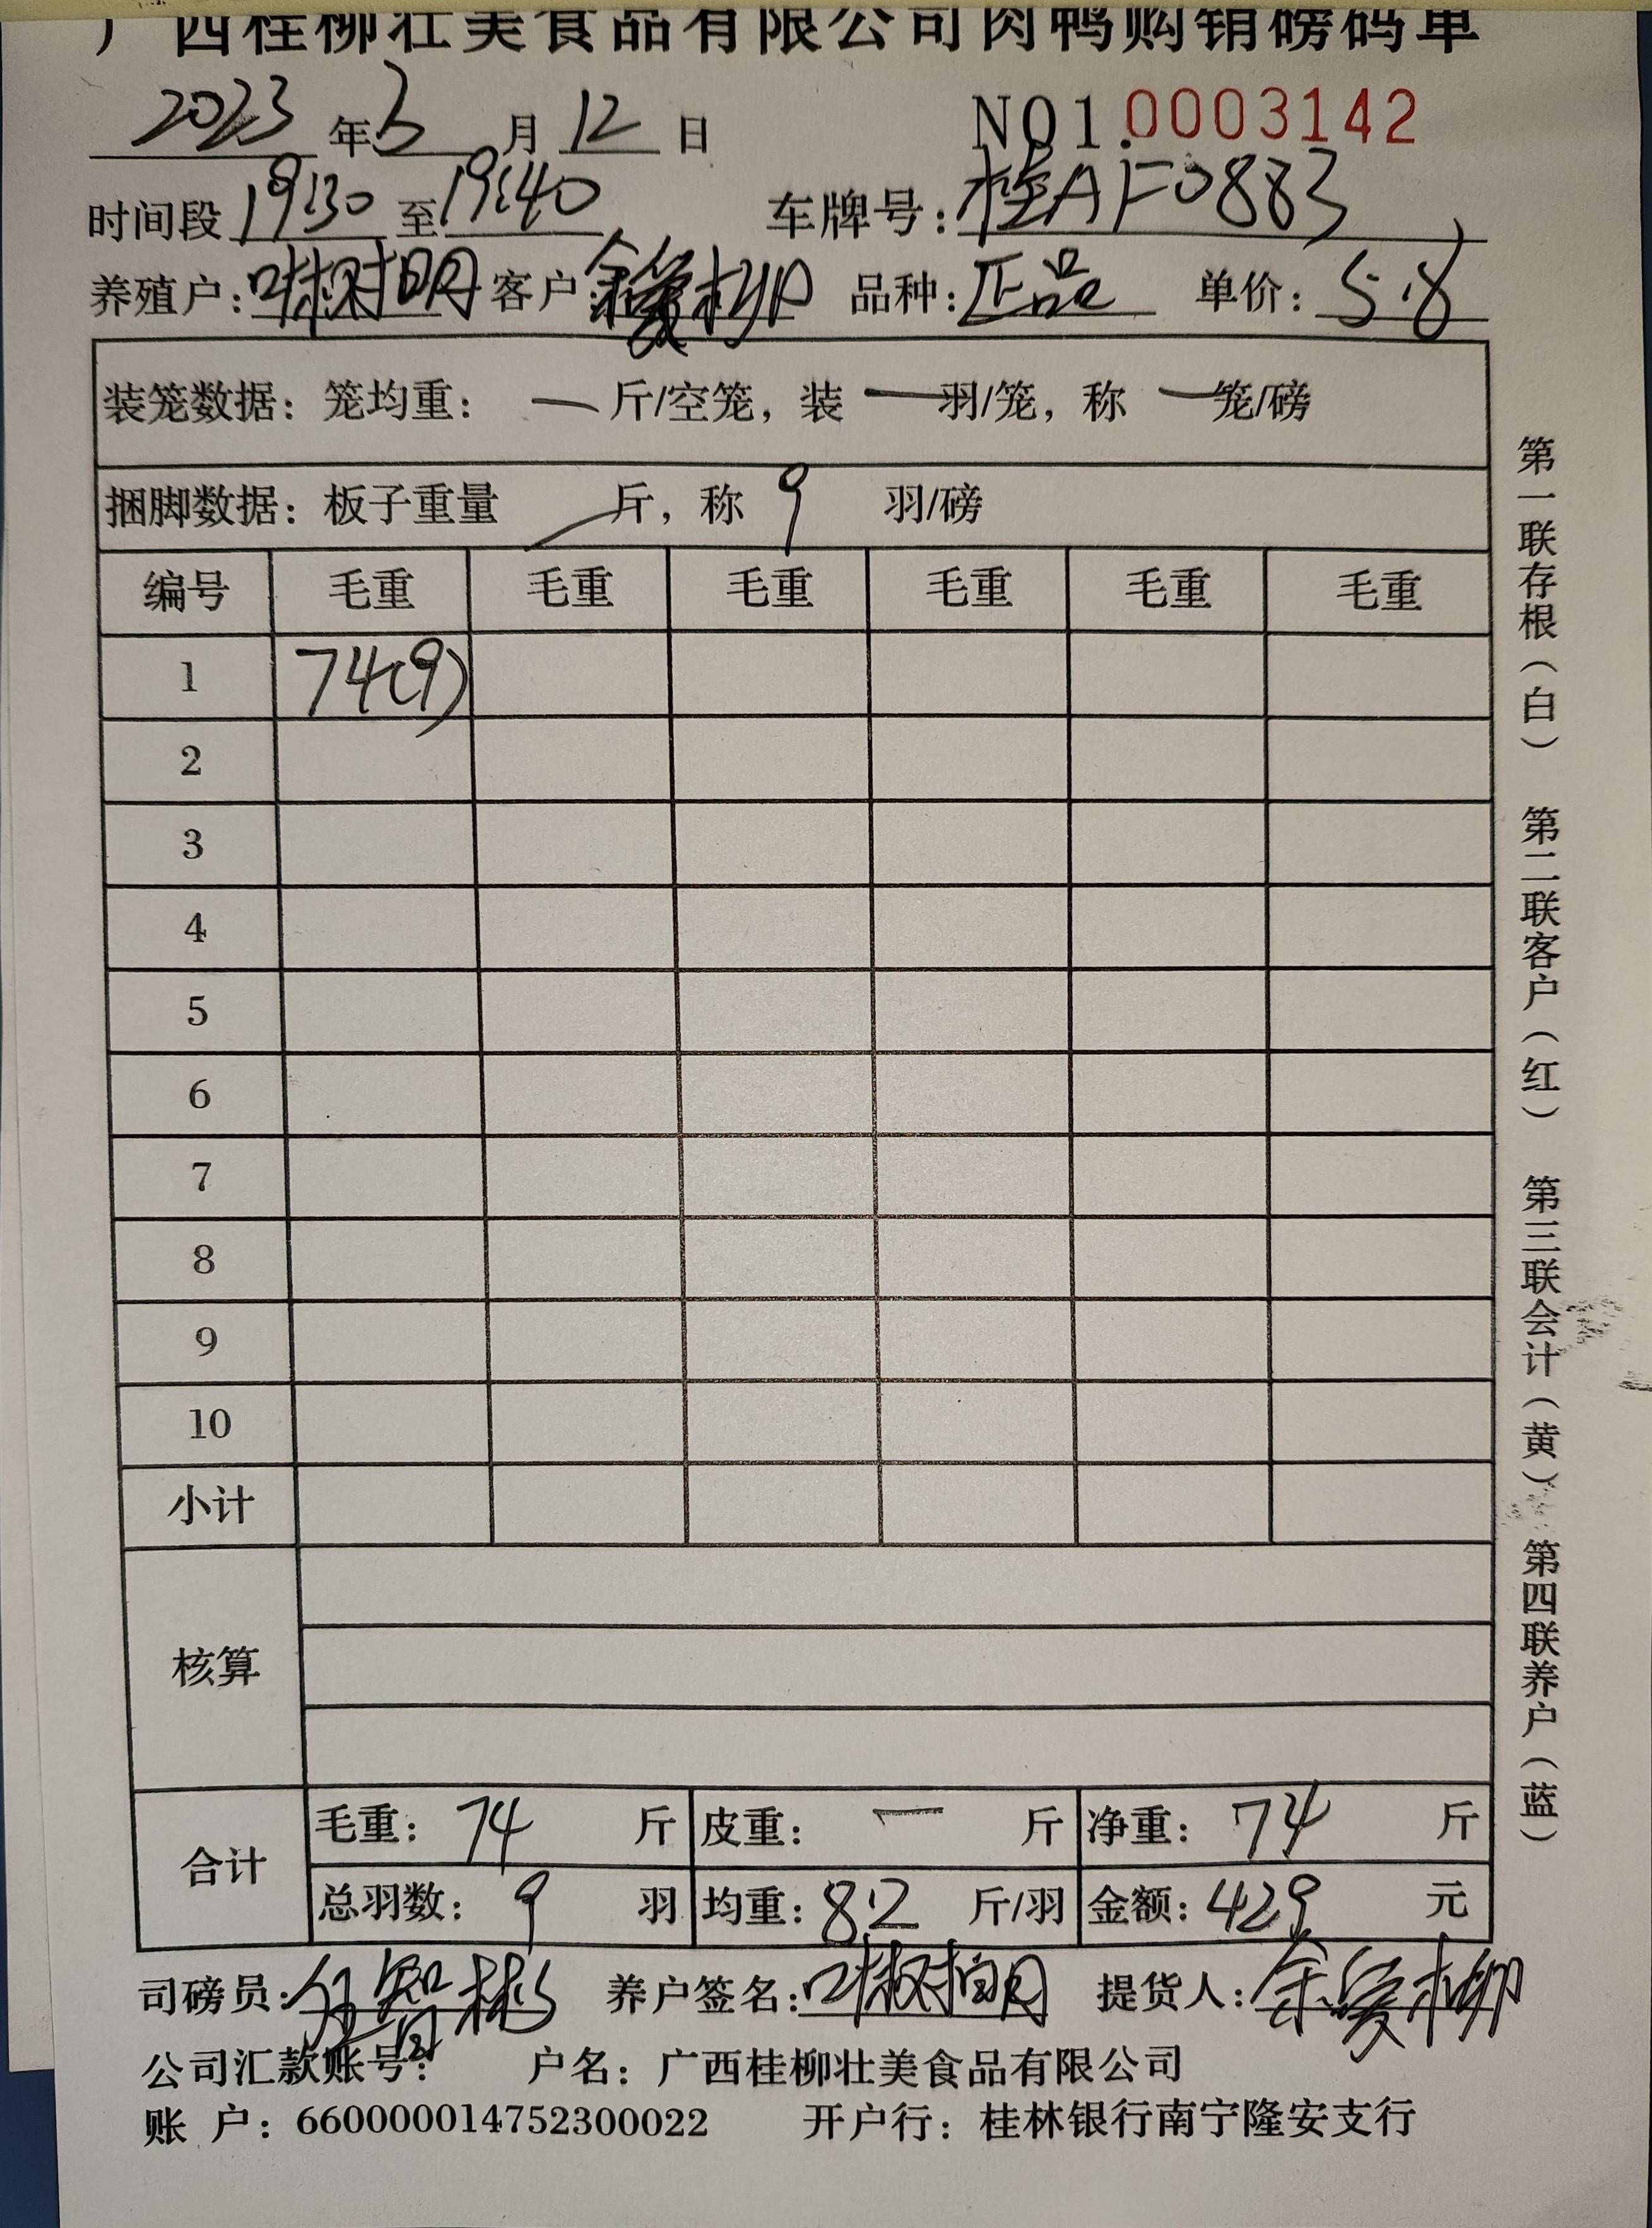 广西桂柳壮美食品有限公司肉鸭购销磅码单
2023年3月12日 NO1.0003142
时间段19:30至19:40 车牌号:桂AF0883
养殖户: 客户: 品种:正品 单价:5.8
装笼数据:笼均重:一斤/空笼,装一羽/笼,称一笼/磅
捆脚数据:板子重量 斤,称9羽/磅
编号 毛重 毛重 毛重 毛重 毛重 毛重
1 74(9)
2
3
4
5
6
7
8
9
10
小计
核算
合计 毛重:74斤 皮重:一斤 净重:74斤
总羽数:9羽 均重:8.2斤/羽 金额:429元
司磅员: 养户签名: 提货人:余爱柳
公司汇款账号: 户名:广西桂柳壮美食品有限公司
账 户:660000014752300022 开户行:桂林银行南宁隆安支行
第一联存根(白) 第二联客户(红) 第三联会计(黄) 第四联养户(蓝)